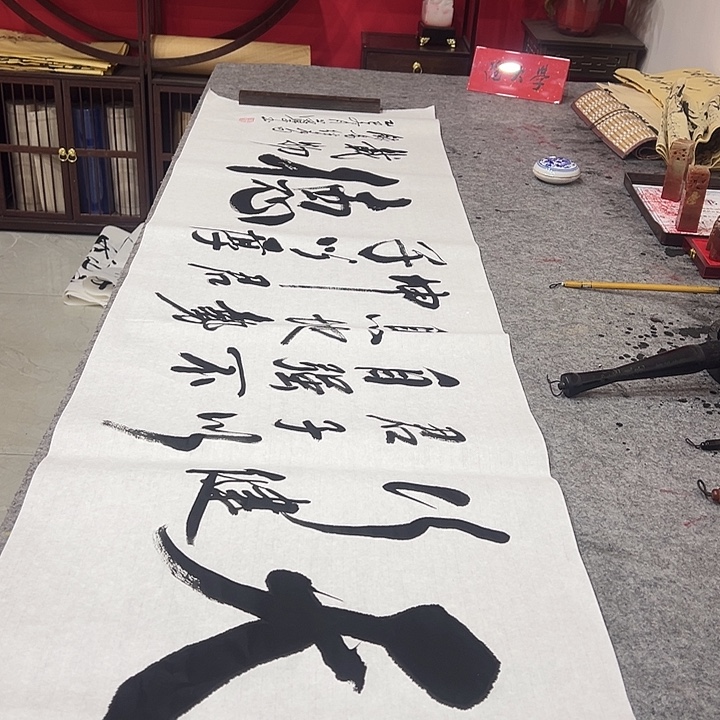 天
行健
君子以
自强不
息地势
坤君
子以厚
德
载物